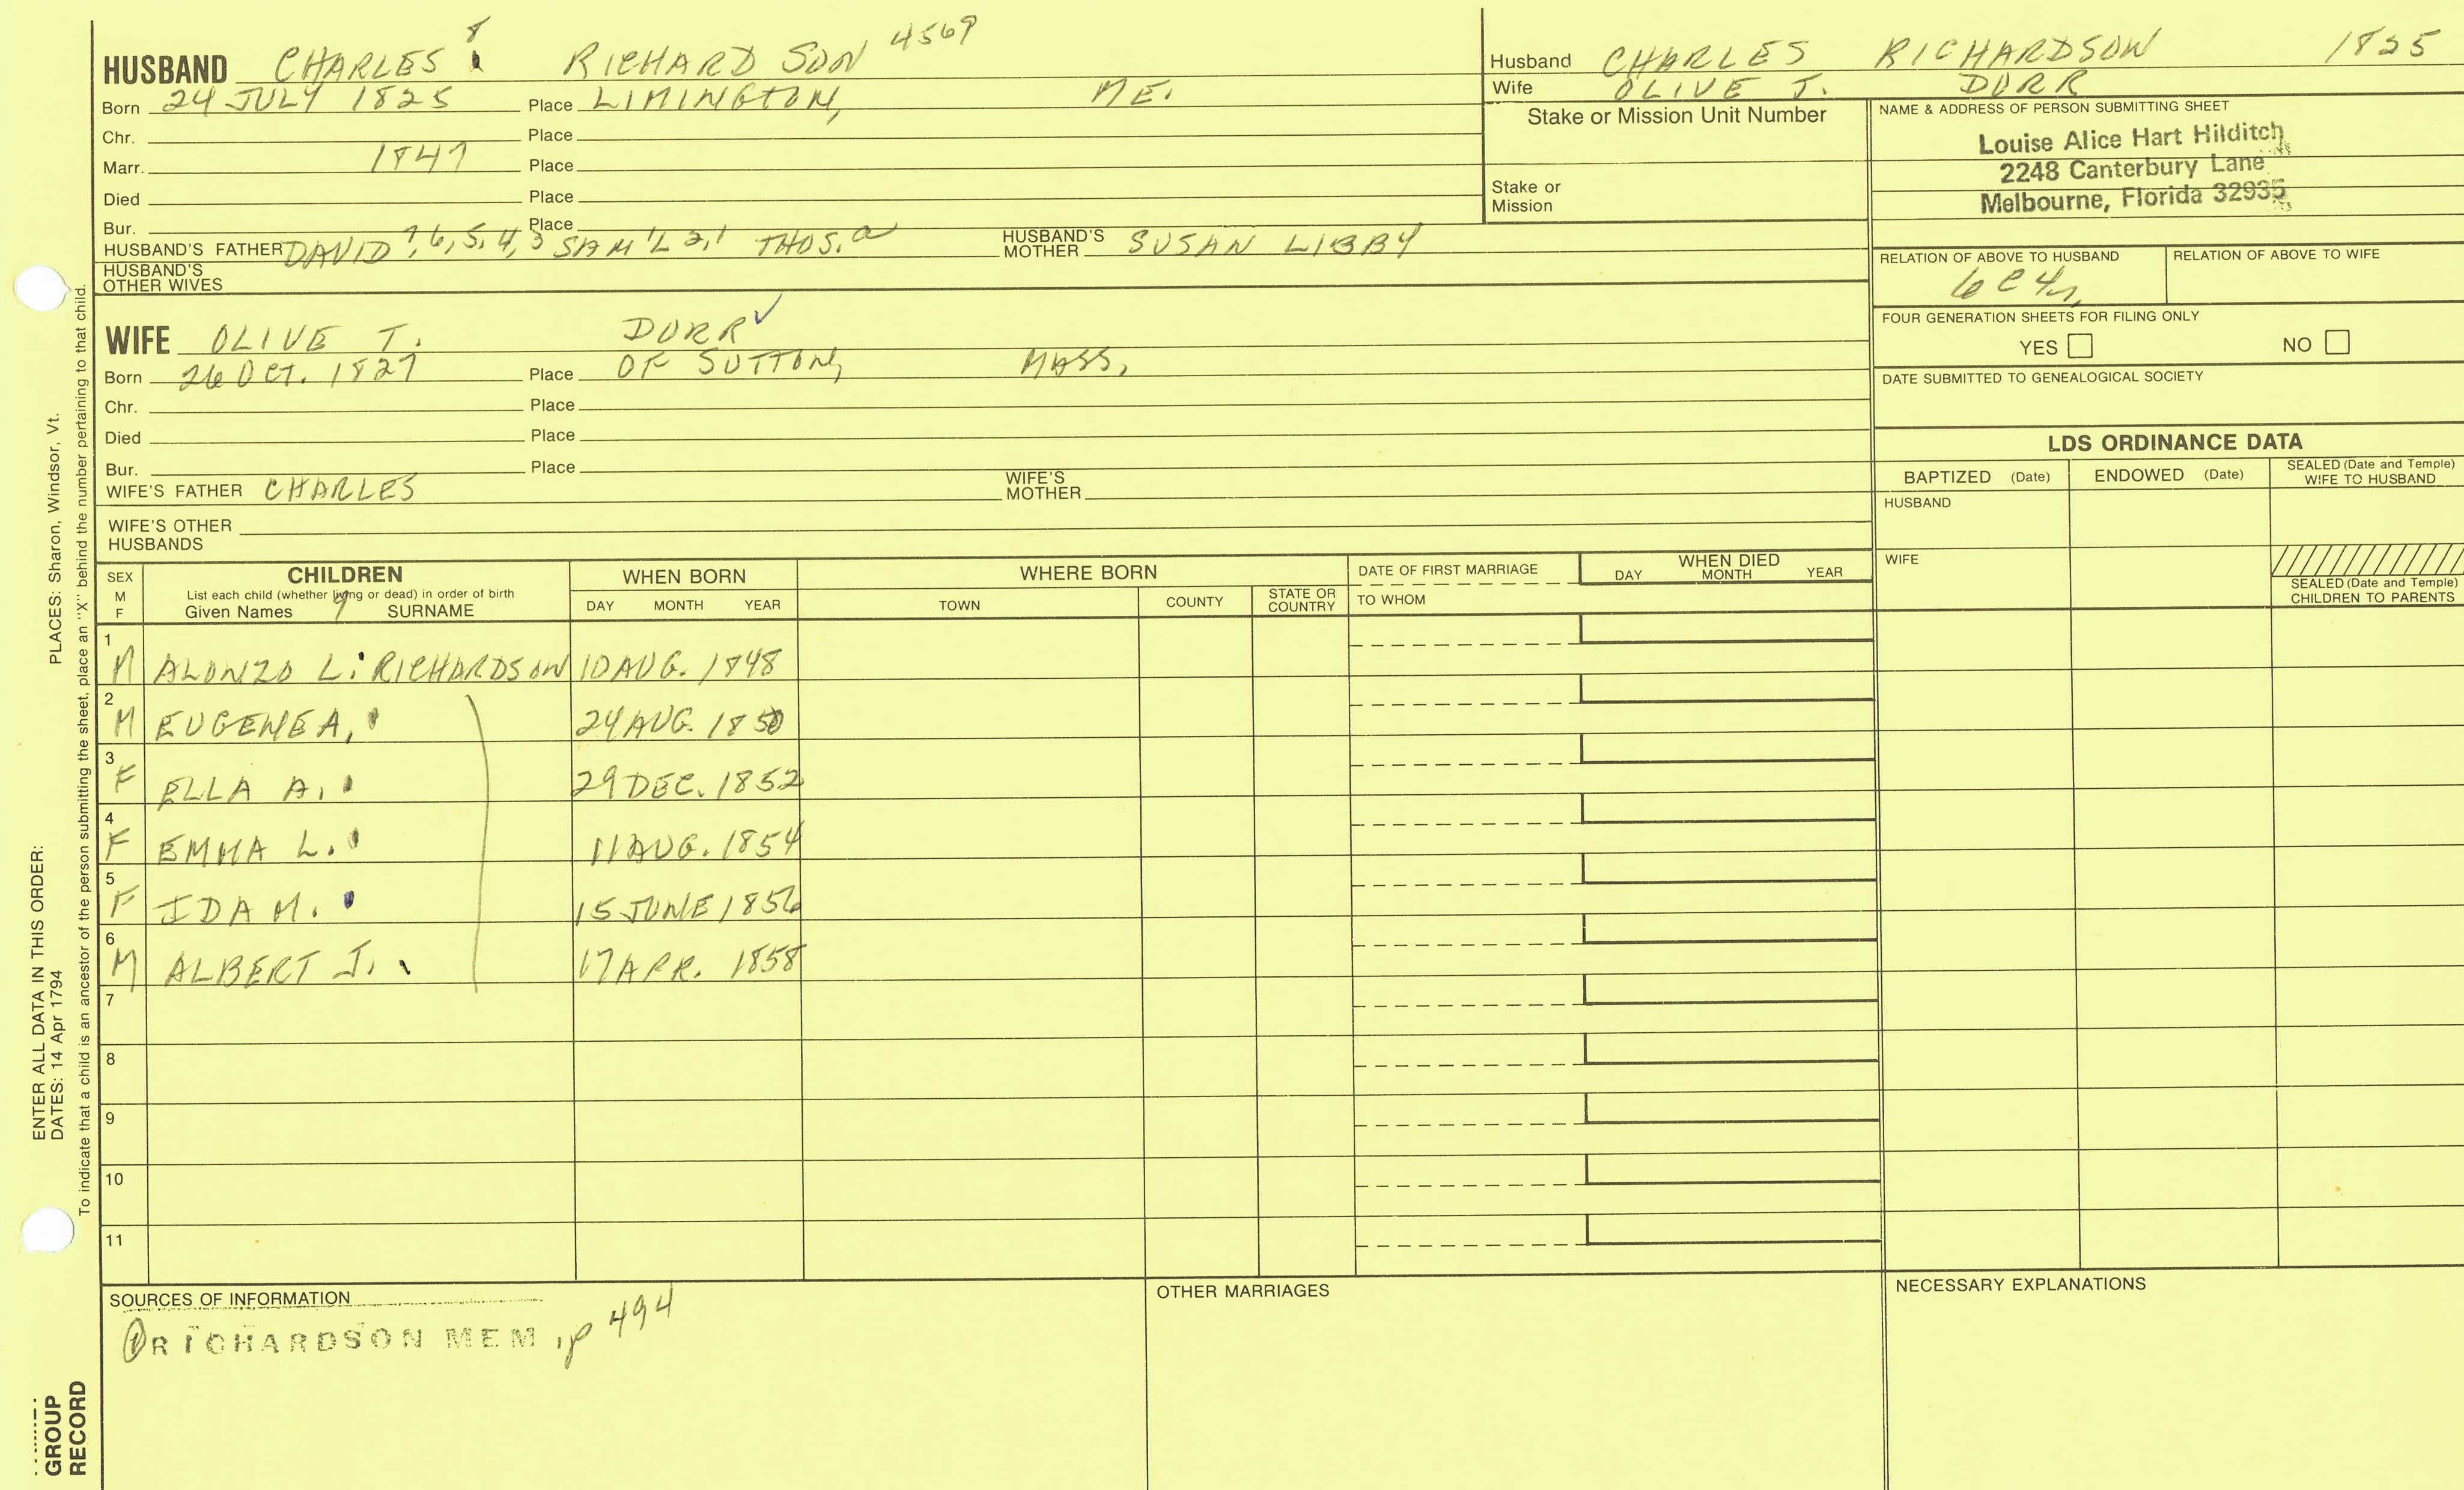 HUSBAND CHARLES 8 RICHARDSON 4569
Born 24 JULY 1825 Place LIMINGTON, ME.
Chr. Place
Marr. 1847 Place
Died Place
Bur. Place
HUSBAND'S FATHER DAVID 7, 6, 5, 4, 3 SAM'L 2, 1 THOS. a HUSBAND'S MOTHER SUSAN LIBBY
HUSBAND'S OTHER WIVES
Husband CHARLES RICHARDSON 1825
Wife OLIVE T. DORR
Stake or Mission Unit Number
Stake or Mission
NAME & ADDRESS OF PERSON SUBMITTING SHEET
Louise Alice Hart Hilditch
2248 Canterbury Lane
Melbourne, Florida 32935
RELATION OF ABOVE TO HUSBAND RELATION OF ABOVE TO WIFE
6C4r
FOUR GENERATION SHEETS FOR FILING ONLY
YES NO
DATE SUBMITTED TO GENEALOGICAL SOCIETY
WIFE OLIVE T. DORR
Born 26 OCT. 1827 Place OF SUTTON, MASS.
Chr. Place
Died Place
Bur. Place
WIFE'S FATHER CHARLES WIFE'S MOTHER
WIFE'S OTHER HUSBANDS
LDS ORDINANCE DATA
BAPTIZED (Date) ENDOWED (Date) SEALED (Date and Temple) WIFE TO HUSBAND
HUSBAND
WIFE
SEALED (Date and Temple) CHILDREN TO PARENTS
SEX M F
CHILDREN
List each child (whether living or dead) in order of birth
Given Names 9 SURNAME
WHEN BORN
DAY MONTH YEAR
WHERE BORN
TOWN COUNTY STATE OR COUNTRY
DATE OF FIRST MARRIAGE
TO WHOM
WHEN DIED
DAY MONTH YEAR
1 M ALONZO L. RICHARDSON 10 AUG. 1848
2 M EUGENE A. 24 AUG. 1850
3 F ELLA A. 29 DEC. 1852
4 F EMMA L. 11 AUG. 1854
5 F IDA M. 15 JUNE 1856
6 M ALBERT J. 17 APR. 1858
7
8
9
10
11
SOURCES OF INFORMATION
① RICHARDSON MEM, p 494
OTHER MARRIAGES
NECESSARY EXPLANATIONS
ENTER ALL DATA IN THIS ORDER:
DATES: 14 Apr 1794 PLACES: Sharon, Windsor, Vt.
To indicate that a child is an ancestor of the person submitting the sheet, place an "X" behind the number pertaining to that child.
GROUP
RECORD